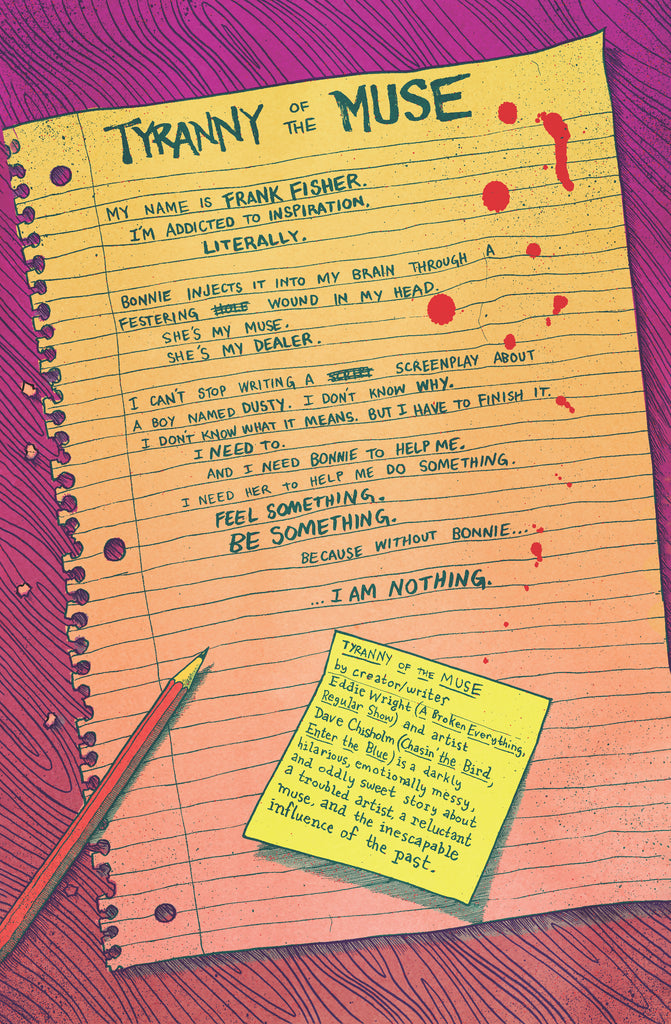 TYRANNY OF THE MUSE
MY NAME IS FRANK FISHER.
I'M ADDICTED TO INSPIRATION.
LITERALLY.
BONNIE INJECTS IT INTO MY BRAIN THROUGH A
FESTERING HOLE WOUND IN MY HEAD.
SHE'S MY MUSE.
SHE'S MY DEALER.
I CAN'T STOP WRITING A SCRIPT SCREENPLAY ABOUT
A BOY NAMED DUSTY. I DON'T KNOW WHY.
I DON'T KNOW WHAT IT MEANS. BUT I HAVE TO FINISH IT.
I NEED TO.
AND I NEED BONNIE TO HELP ME.
I NEED HER TO HELP ME DO SOMETHING.
FEEL SOMETHING.
BE SOMETHING.
BECAUSE WITHOUT BONNIE...
...I AM NOTHING.
TYRANNY OF THE MUSE
by creator/writer
Eddie Wright (A Broken Everything,
Regular Show) and artist
Dave Chisholm (Chasin' the Bird,
Enter the Blue) is a darkly
hilarious, emotionally messy,
and oddly sweet story about
a troubled artist, a reluctant
muse, and the inescapable
influence of the past.